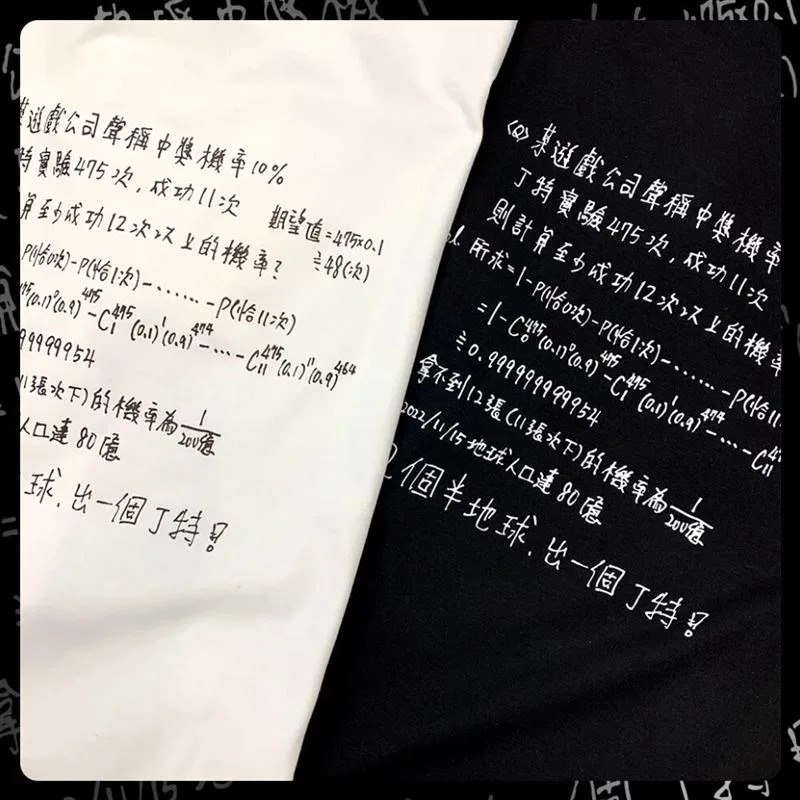 某遊戲公司聲稱中獎機率10%
特實驗475次,成功11次
期望值=475×0.1
≒48(次)
算至少成功12次以上的機率?
P(恰0次)-P(恰1次)-……-P(恰11次)
(0.1)⁰(0.9)⁴⁷⁵-C₁⁴⁷⁵(0.1)¹(0.9)⁴⁷⁴-…-C₁₁⁴⁷⁵(0.1)¹¹(0.9)⁴⁶⁴
99999954
(11張以下)的機率為1/200億
人口達80億
球,出一個丁特!!
<Q>某遊戲公司聲稱中獎機率
丁特實驗475次,成功11次
則計算至少成功12次以上的機率
所求=1-P(恰0次)-P(恰1次)-……-P(恰11
=1-C₀⁴⁷⁵(0.1)⁰(0.9)⁴⁷⁵-C₁⁴⁷⁵(0.1)¹(0.9)⁴⁷⁴-…-C₁₁⁴⁷
≒0.99999999954
拿不到12張(11張以下)的機率為1/200億
2022/11/15地球人口達80億
2個半地球,出一個丁特!!